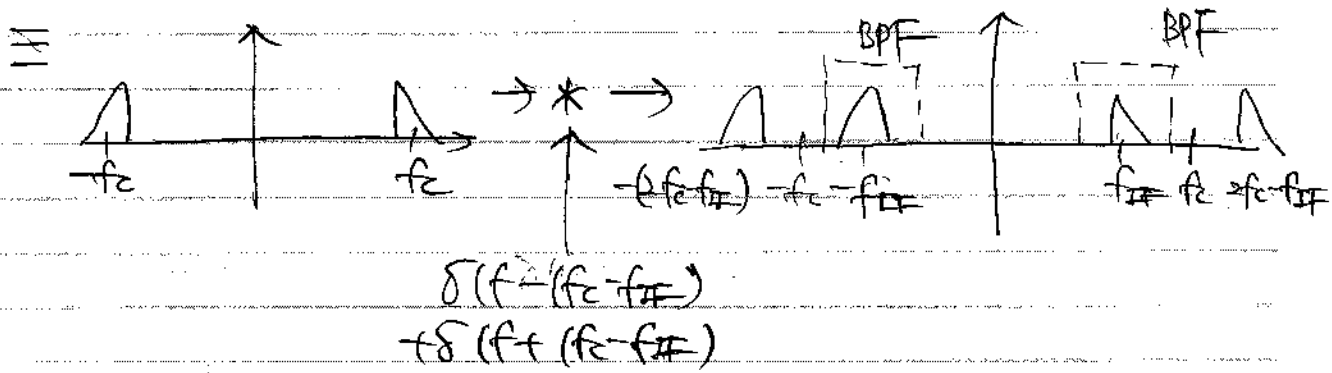 ≡
BPF BPF
→ * →
-fc fc -(2fc-fIF) -fc -fIF fIF fc 2fc-fIF
δ(f-(fc-fIF)
+δ(f+(fc-fIF)